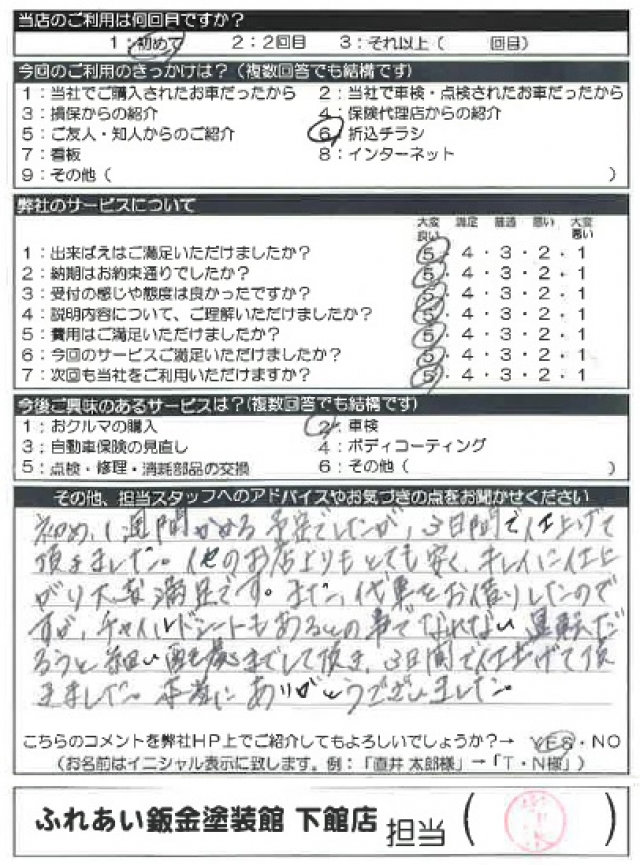 当店のご利用は何回目ですか?
1:初めて 2:2回目 3:それ以上( 回目)
今回のご利用のきっかけは?(複数回答でも結構です)
1:当社でご購入されたお車だったから 2:当社で車検・点検されたお車だったから
3:損保からの紹介 4:保険代理店からの紹介
5:ご友人・知人からのご紹介 6:折込チラシ
7:看板 8:インターネット
9:その他( )
弊社のサービスについて
大変良い 満足 普通 悪い 大変悪い
1:出来ばえはご満足いただけましたか? 5・4・3・2・1
2:納期はお約束通りでしたか? 5・4・3・2・1
3:受付の感じや態度は良かったですか? 5・4・3・2・1
4:説明内容について、ご理解いただけましたか? 5・4・3・2・1
5:費用はご満足いただけましたか? 5・4・3・2・1
6:今回のサービスご満足いただけましたか? 5・4・3・2・1
7:次回も当社をご利用いただけますか? 5・4・3・2・1
今後ご興味のあるサービスは?(複数回答でも結構です)
1:おクルマの購入 2:車検
3:自動車保険の見直し 4:ボディコーティング
5:点検・修理・消耗部品の交換 6:その他( )
その他、担当スタッフへのアドバイスやお気づきの点をお聞かせください
初め、1週間かかる予定でしたが、3日間で仕上げて
頂きました。他のお店よりもとても安く、キレイに仕上
がり大変満足です。また、代車をお借りしたので
すが、チャイルドシートもあるとの事でなれない運転だ
ろうと細い配慮までして頂き、3日間で仕上げて頂
きました。本当にありがとうございました。
こちらのコメントを弊社HP上でご紹介してもよろしいでしょうか?→ YES・NO
(お名前はイニシャル表示に致します。例:「直井 太郎様」→「T・N様」)
ふれあい鈑金塗装館 下館店 担当( )